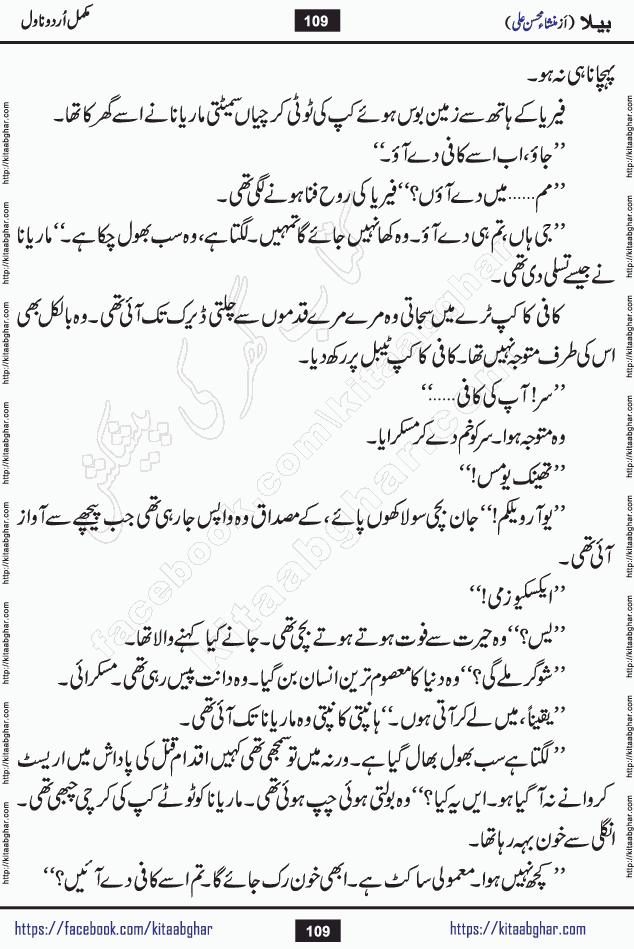 بیلا (از منشاء محسن علی) 109 مکمل اُردو ناول
پہچانا ہی نہ ہو۔
فیریا کے ہاتھ سے زمین بوس ہوئے کپ کی ٹوٹی کرچیاں سمیٹتی ماریانا نے اسے گھرکا تھا۔
’’جاؤ، اب اسے کافی دے آؤ۔‘‘
’’مم...... میں دے آؤں؟‘‘ فیریا کی روح فنا ہونے لگی تھی۔
’’جی ہاں، تم ہی دے آؤ۔ وہ کھا نہیں جائے گا تمہیں۔ لگتا ہے، وہ سب بھول چکا ہے۔‘‘ ماریانا
نے جیسے تسلی دی تھی۔
کافی کا کپ ٹرے میں سجاتی وہ مرے مرے قدموں سے چلتی ڈیرک تک آئی تھی۔ وہ بالکل بھی
اس کی طرف متوجہ نہیں تھا۔ کافی کا کپ ٹیبل پر رکھ دیا۔
’’سر! آپ کی کافی......‘‘
وہ متوجہ ہوا۔ سر کو خم دے کر مسکرایا۔
’’تھینک یو مس!‘‘
’’یو آر ویلکم!‘‘ جان بچی سو لاکھوں پائے، کے مصداق وہ واپس جا رہی تھی جب پیچھے سے آواز
آئی تھی۔
’’ایکسکیوز می!‘‘
’’یس؟‘‘ وہ حیرت سے فوت ہوتے ہوتے بچی تھی۔ جانے کیا کہنے والا تھا۔
’’شوگر ملے گی؟‘‘ وہ دنیا کا معصوم ترین انسان بن گیا۔ وہ دانت پیس رہی تھی۔ مسکرائی۔
’’یقیناً، میں لے کر آتی ہوں۔‘‘ ہانپتی کانپتی وہ ماریانا تک آئی تھی۔
’’لگتا ہے سب بھول بھال گیا ہے۔ ورنہ میں تو سمجھی تھی کہیں اقدام قتل کی پاداش میں اریسٹ
کروانے نہ آ گیا ہو۔ ایں یہ کیا؟‘‘ وہ بولتی ہوئی چپ ہوئی تھی۔ ماریانا کو ٹوٹے کپ کی کرچی چبھی تھی۔
انگلی سے خون بہہ رہا تھا۔
’’کچھ نہیں ہوا۔ معمولی سا کٹ ہے۔ ابھی خون رک جائے گا۔ تم اسے کافی دے آئیں؟‘‘
https://facebook.com/kitaabghar 109 https://kitaabghar.com
http://kitaabghar.com
کتاب گھر کی پیشکش
facebook.com/kitaabghar
kitaabghar.com